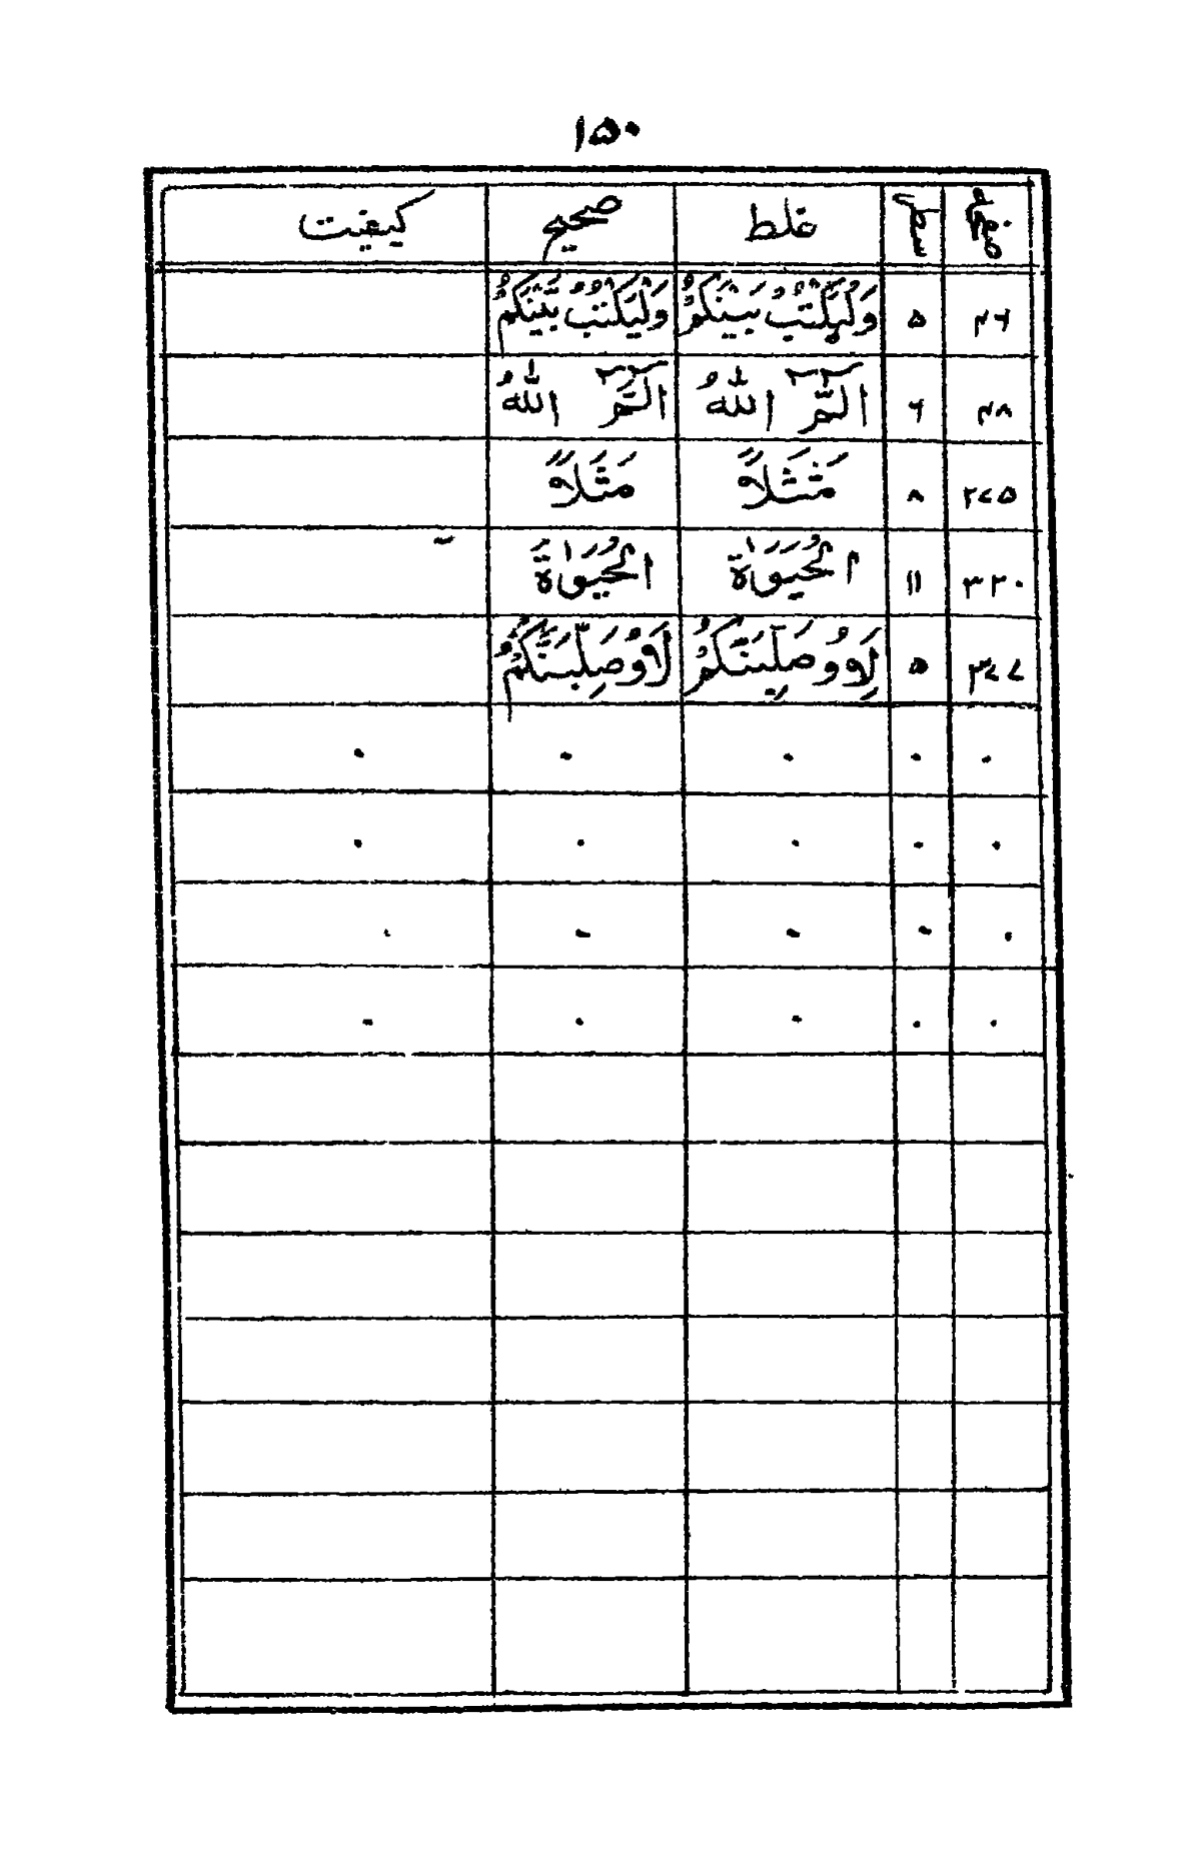 ۱۵۰
صفحہ سطر غلط صحیح کیفیت
۴۶ ۵ وَلْيَكْتُبُ بَيْنَكُمْ وَلْيَكْتُبْ بَّيْنَكُمْ
۴۸ ۶ الٓمّٓ اللّٰهُ الٓمّٓ اللّٰهُ
۲۷۵ ۸ مَثَلًا مَثَلًا
۳۲۰ ۱۱ الْحَيَوٰةَ الْحَيَوٰةُ
۳۴۷ ۵ لَاُوصَلِّبَنَّكُمْ لَاُوصَلِّبَنَّكُمْ